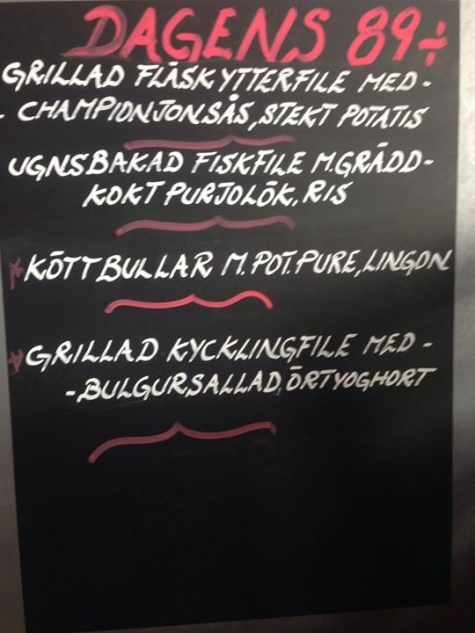 DAGENS 89÷
GRILLAD FLÄSKYTTERFILE MED-
- CHAMPIONJONSÅS, STEKT POTATIS
UGNSBAKAD FISKFILE M.GRÄDD-
KOKT PURJOLÖK, RIS
*KÖTTBULLAR M. POT.PURE, LINGON
*GRILLAD KYCKLINGFILE MED -
-BULGURSALLAD, ÖRTYOGHORT